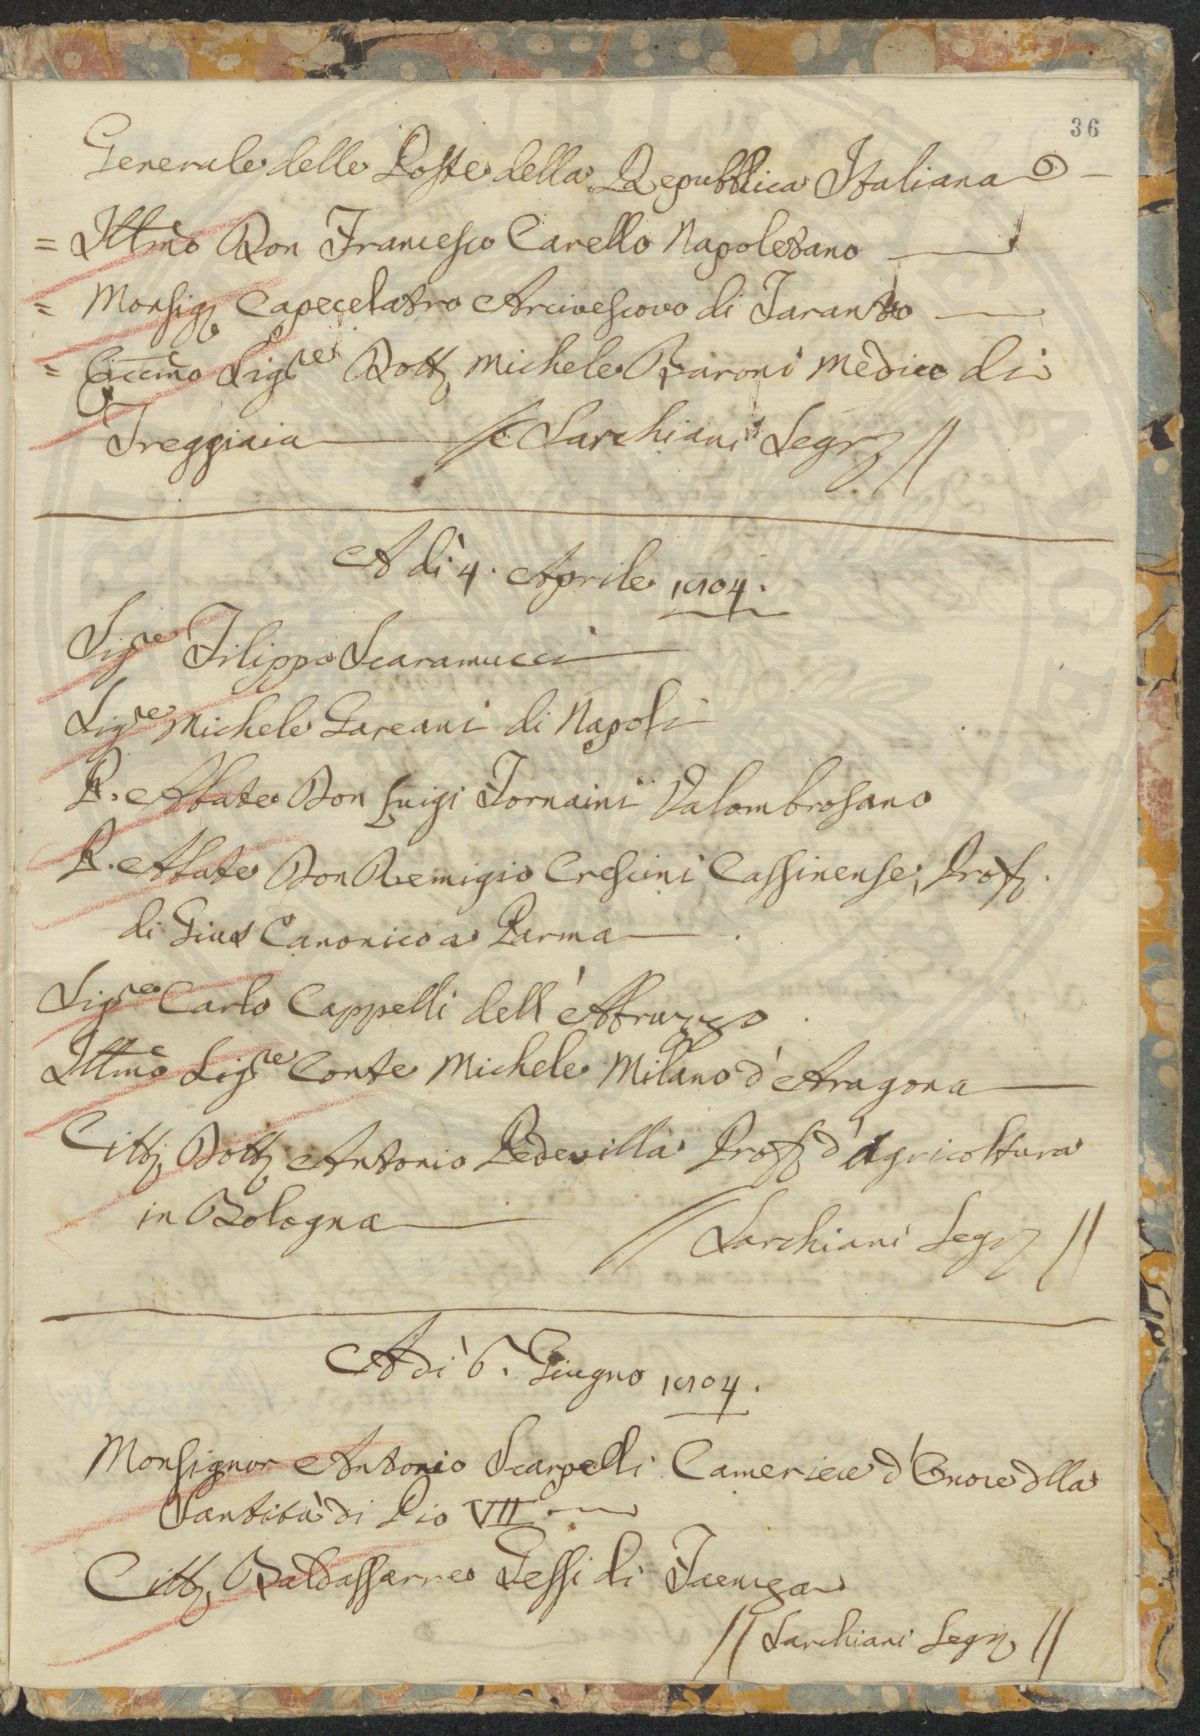 36
Generale delle Poste della Repubblica Italiana
= Illmo Don Francesco Carello Napoletano
= Monsig. Capecelatro Arcivescovo di Taranto
= Eccmo Sigre Dott. Michele Baroni Medico di
Treggiaia // Sarchiani Segr. //
A dì 4. Aprile 1804.
Sigre Filippo Scaramucci
Sigre Michele Gareani di Napoli
P. Abate Don Luigi Fornaini Valombrosano
P. Abate Don Remigio Crescini Cassinense, Prof.
di Gius Canonico a Parma
Sigre Carlo Cappelli dell'Abruzzo
Illmo Sigre Conte Michele Milano d'Aragona
Citt. Dott. Antonio Pedevilla Prof. d'Agricoltura
in Bologna // Sarchiani Segr. //
A dì 6. Giugno 1804.
Monsignor Antonio Scarpelli Cameriere d'Onore dlla
Santità di Pio VII
Citt. Baldassarre Gessi di
// Sarchiani Segr. //